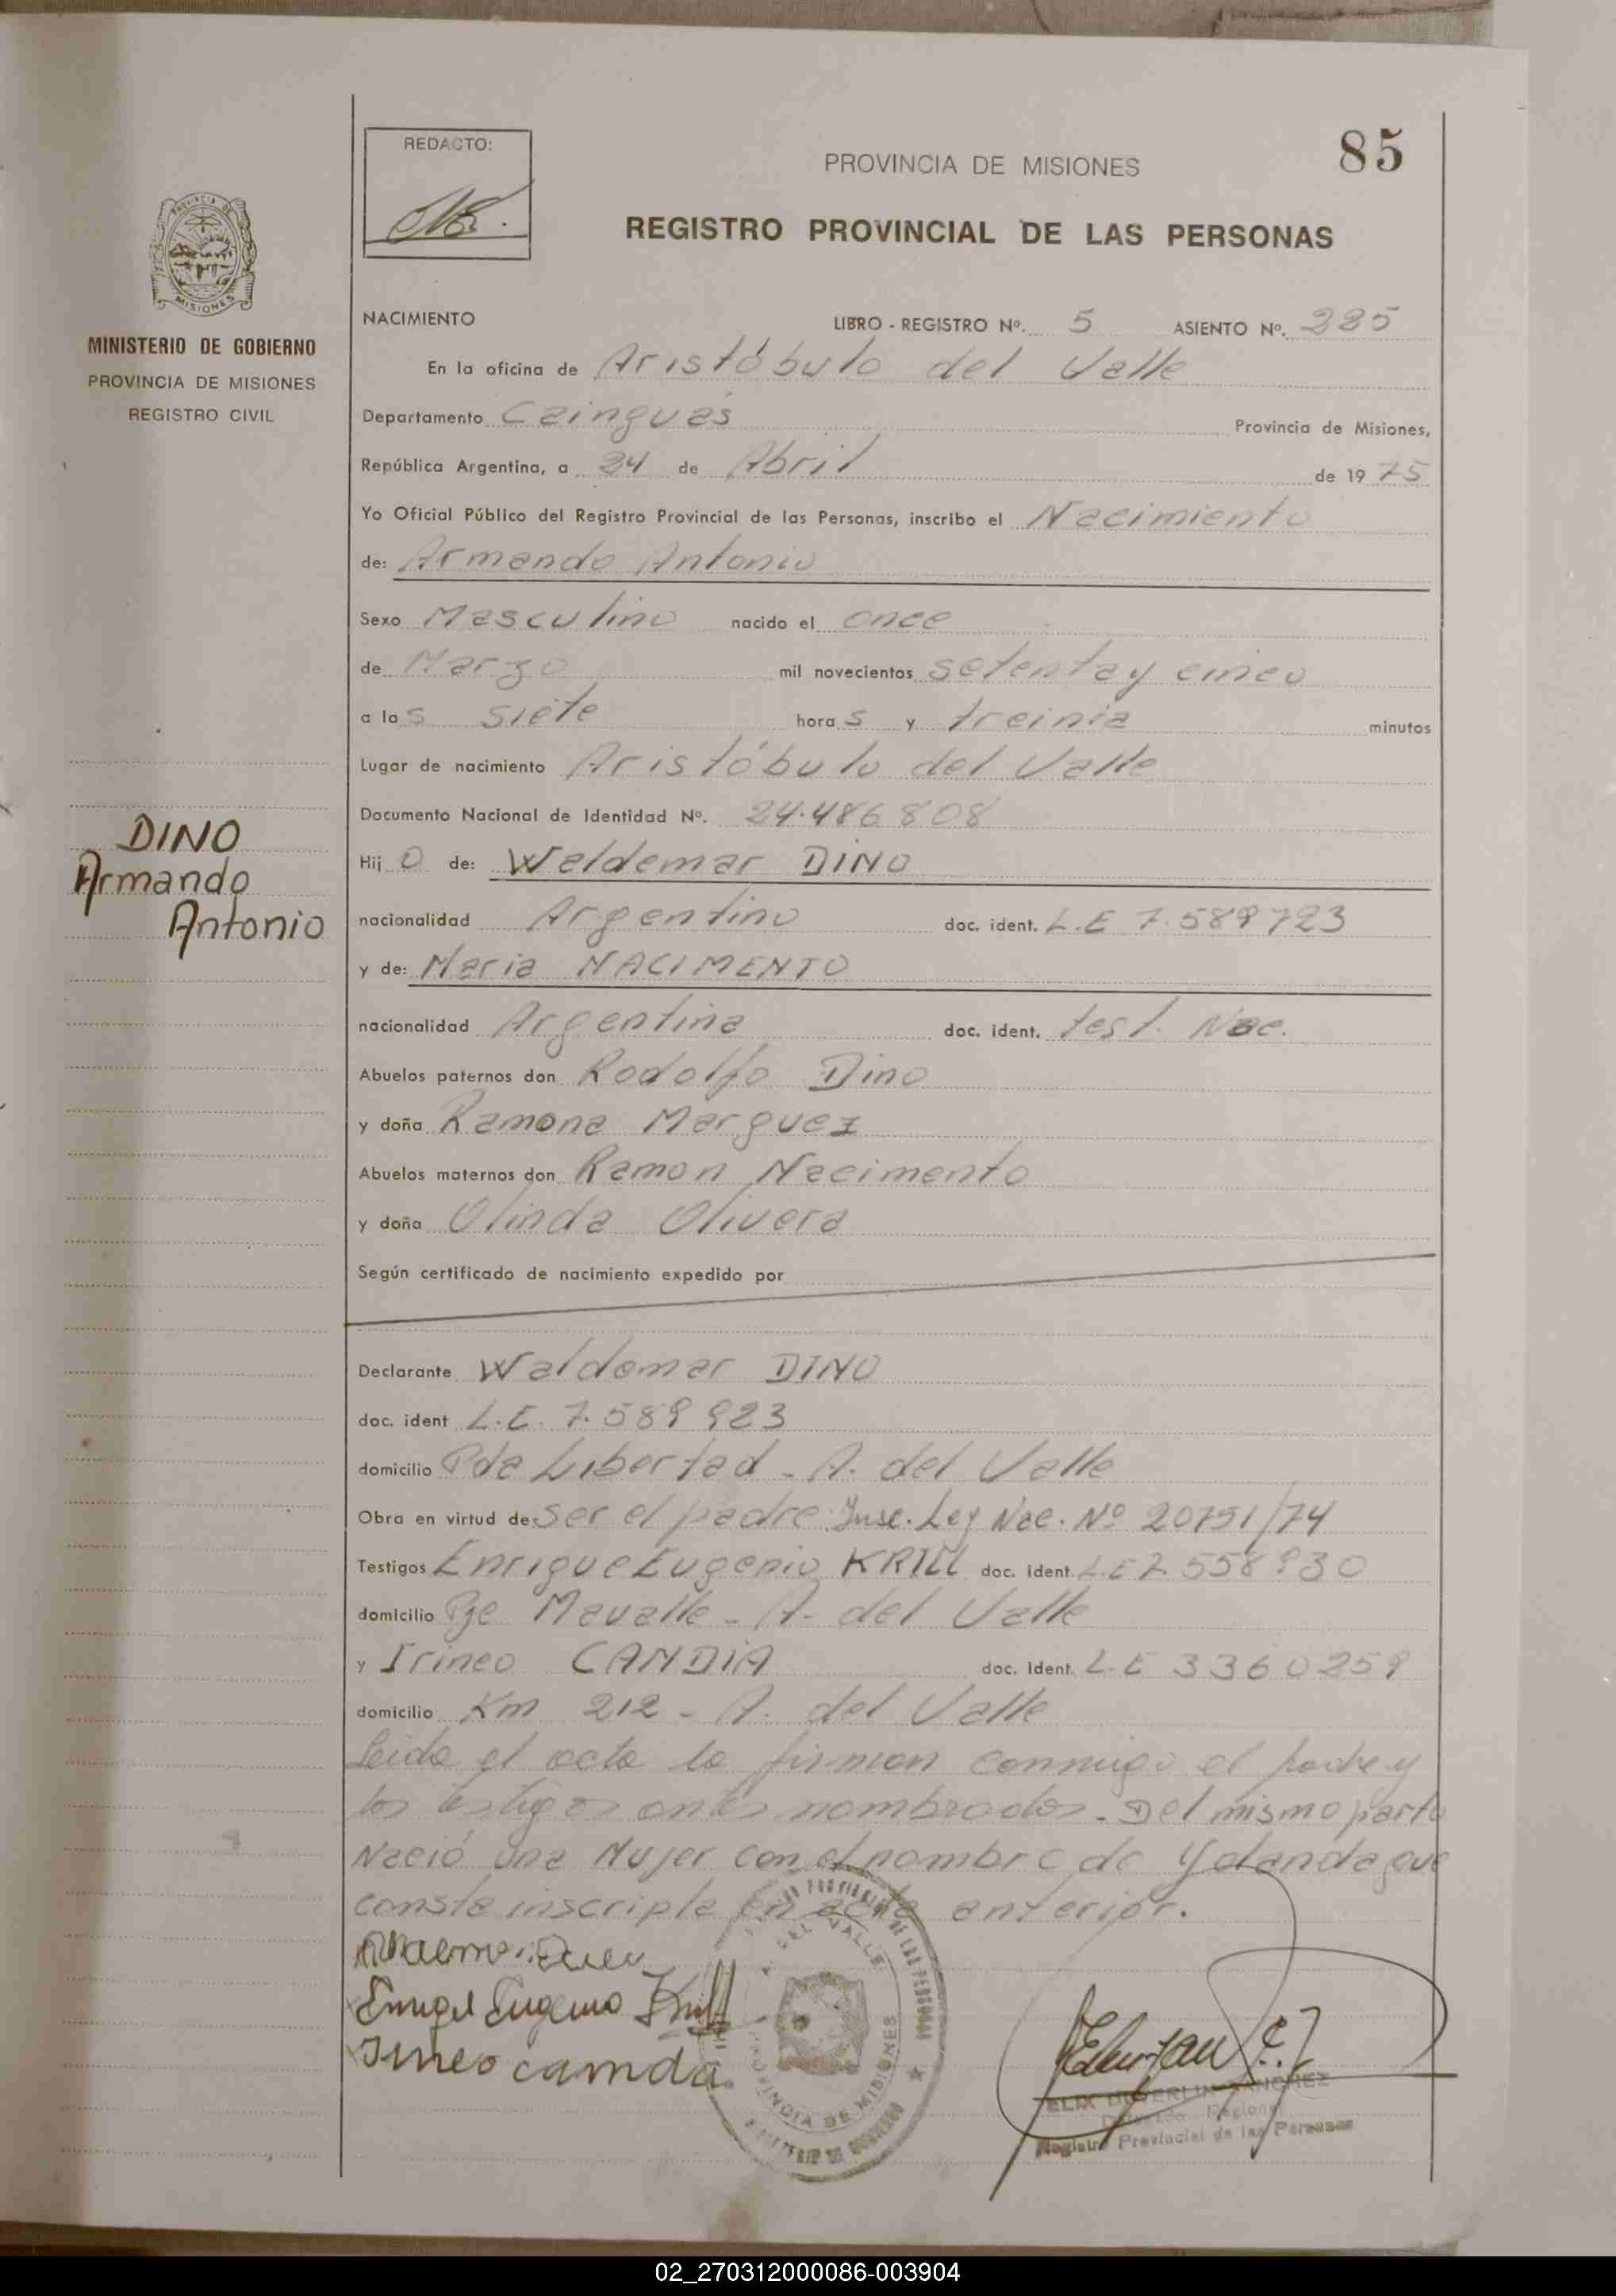 85
REDACTO:
PROVINCIA DE MISIONES
REGISTRO PROVINCIAL DE LAS PERSONAS
PROVINCIA DE
MISIONES
MINISTERIO DE GOBIERNO
PROVINCIA DE MISIONES
REGISTRO CIVIL
NACIMIENTO LIBRO - REGISTRO Nº. 5 ASIENTO Nº. 285
En la oficina de Aristóbulo del Valle
Departamento Cainguás Provincia de Misiones,
República Argentina, a 24 de Abril de 1975
Yo Oficial Público del Registro Provincial de las Personas, inscribo el Nacimiento
de: Armando Antonio
Sexo Masculino nacido el once
de Marzo mil novecientos setenta y cinco
a las siete horas y treinta minutos
Lugar de nacimiento Aristóbulo del Valle
Documento Nacional de Identidad Nº. 24.486808
DINO
Armando
Antonio
Hijo de: Waldemar DINO
nacionalidad Argentino doc. ident. L.E 7.589723
y de: Maria NACIMENTO
nacionalidad Argentina doc. ident. test. Nac.
Abuelos paternos don Rodolfo Dino
y doña Ramona Marquez
Abuelos maternos don Ramon Nacimento
y doña Olinda Olivera
Según certificado de nacimiento expedido por
Declarante Waldemar DINO
doc. ident L.E. 7.589923
domicilio Pda Libertad - A. del Valle
Obra en virtud de: ser el padre. Insc. Ley Nac. Nº 20751/74
Testigos Enrique Eugenio KRILL doc. ident. L.E 7.558930
domicilio Pje Mavalle - A. del Valle
y Irineo CANDIA doc. Ident. L.E 3360259
domicilio Km 212 - A. del Valle
Leida el acta la firman conmigo el padre y
los testigos antes nombrados. Del mismo parto
Nació una Mujer con el nombre de Yolanda que
consta inscripta en acta anterior.
Enrique Eugenio Krill
Irineo candia
A. DEL VALLE
PROVINCIA DE MISIONES
SANCHEZ
Registro Provincial de las Personas
02_270312000086-003904